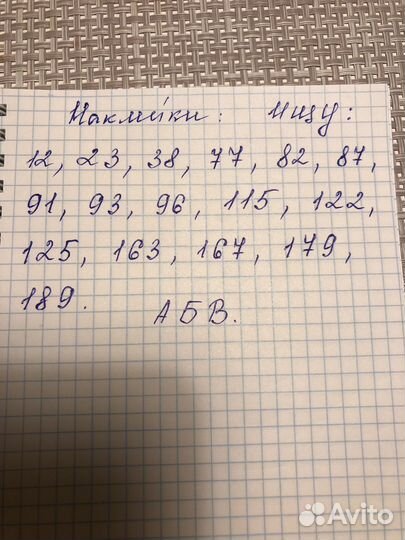 Наклейки: Ищу:
12, 23, 38, 77, 82, 87,
91, 93, 96, 115, 122,
125, 163, 167, 179,
189.
А Б В.
Avito